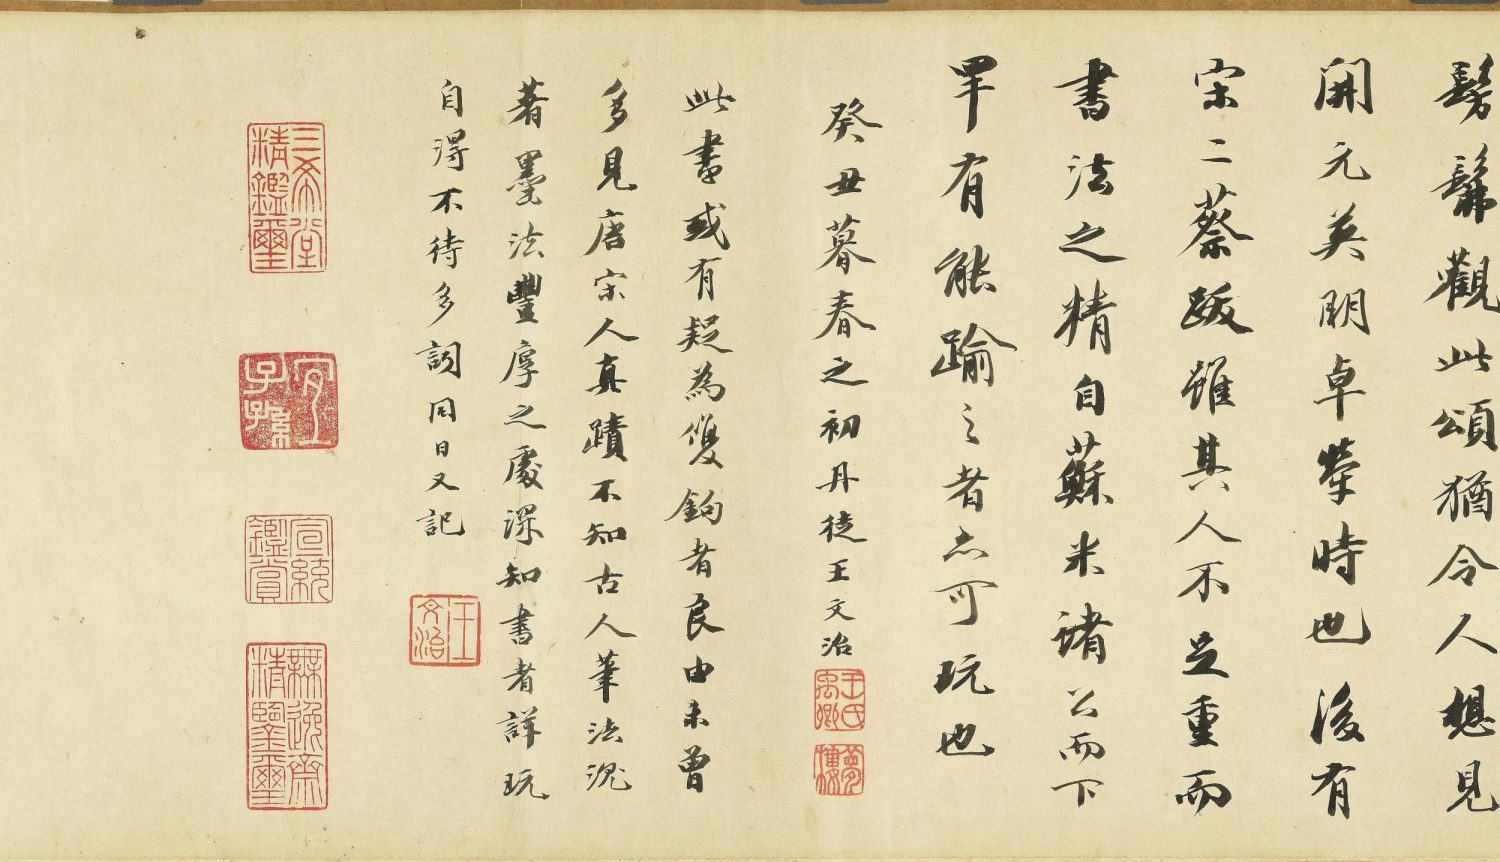 髣髴觀此頌猶令人想見
開元英明卓犖時也後有
宋二蔡跋雖其人不足重而
書法之精自蘇米諸公而下
罕有能踰之者亦可玩也
癸丑暮春之初丹徒王文治
王氏禹卿
夢樓
此書或有疑為雙鉤者良由未曾
多見唐宋人真蹟不知古人筆法沉
著墨法豐厚之處深知書者詳玩
自得不待多詞同日又記
王文治
三希堂精鑑璽
宜子孫
宣統鑑賞
無逸齋精鑒璽